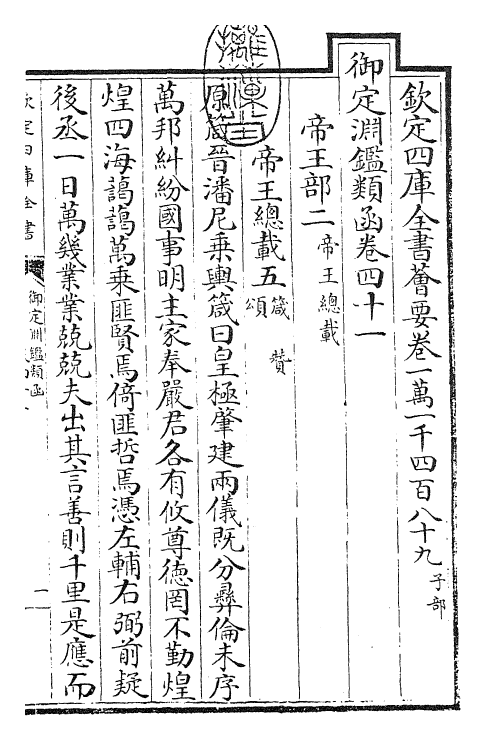 欽定四庫全書薈要卷一萬一千四百八十九 子部
御定淵鑑類函卷四十一
帝王部二 帝王總載
帝王總載五 箴 贊 頌
原箴晉潘尼乘輿箴曰皇極肇建兩儀既分彝倫未序
萬邦糾紛國事明主家奉嚴君各有攸尊徳罔不勤煌
煌四海藹藹萬乘匪賢焉倚匪哲焉憑左輔右弼前疑
後丞一日萬幾業業兢兢夫出其言善則千里是應而
欽定四庫全書
御定淵鑑類函
一